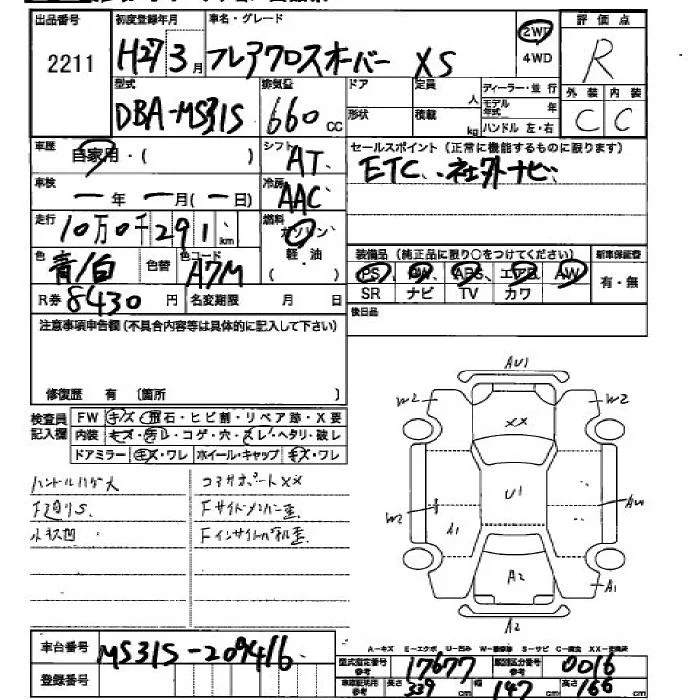 出品番号 初度登録年月 車名・グレード 評価点
2211 H27 3月 フレアクロスオーバー XS 2WD 4WD R
型式 排気量 ドア 定員 人 ディーラー・並行 外装 内装
DBA-MS31S 660cc 形状 積載 kg モデル年式 年 ハンドル 左・右 C C
車歴 自家用・( ) シフト AT セールスポイント(正常に機能するものに限ります)
車検 ー年 ー月(ー日) 冷房 AAC ETC、社外ナビ
走行 10万0千291km 燃料 ガソリン 軽・油 ( )
色 青/白 色替 色コード A7M 装備品(純正品に限り○をつけてください) 新車保証書
PS PW ABS エアB AW 有・無
R券 8430円 名変期限 月 日 SR ナビ TV カワ
注意事項申告欄(不具合内容等は具体的に記入して下さい) 後日品
修復歴 有 〔箇所 〕
検査員記入欄 FW キズ・飛石・ヒビ割・リペア跡・X要
内装 キズ・汚レ・コゲ・穴・スレ・ヘタリ・破レ
ドアミラー キズ・ワレ ホイール・キャップ キズ・ワレ
ハンドルハゲ大 コアサポートXX
F廻りS Fサイドメンバー歪
Fインサイドパネル歪
AU1
W2 W2
XX
U1
W2 A1
A2 A1
A2
A-キズ E-エクボ U-凹み W-補修跡 S-サビ C-腐食 XX-交換済
車台番号 MS31S-209416 型式指定番号 参考 17677 類別区分番号 参考 0016
登録番号 車庫証明用 参考 長さ 339cm 幅 147cm 高さ 166cm